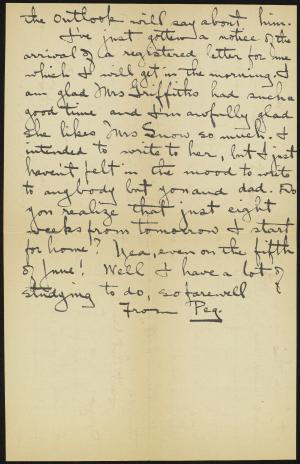 the Outlook will say about him.
I've just gotten a notice of the
arrival of a registered letter for me
which I will get in the morning. I
am glad Mrs Griffiths had such a
good time and I'm awfully glad
she likes Mrs Snow so much. I
intended to write to her, but I just
haven't felt in the mood to write
to anybody but you and dad. Do
you realize that just eight
weeks from tomorrow I start
for home? Yea, even on the fifth
of June! Well I have a lot of
studying to do, so farewell
From Peg.